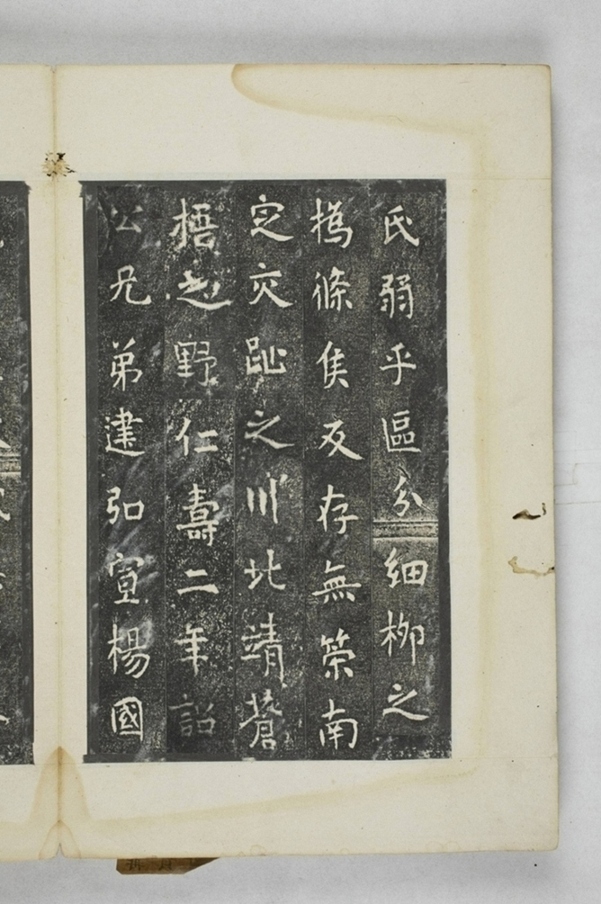 氏弱乎區分細柳之
撝條侯反存無策南
定交趾之川北靖蒼
梧之野仁壽二年詔
公兄弟建弘宣楊國